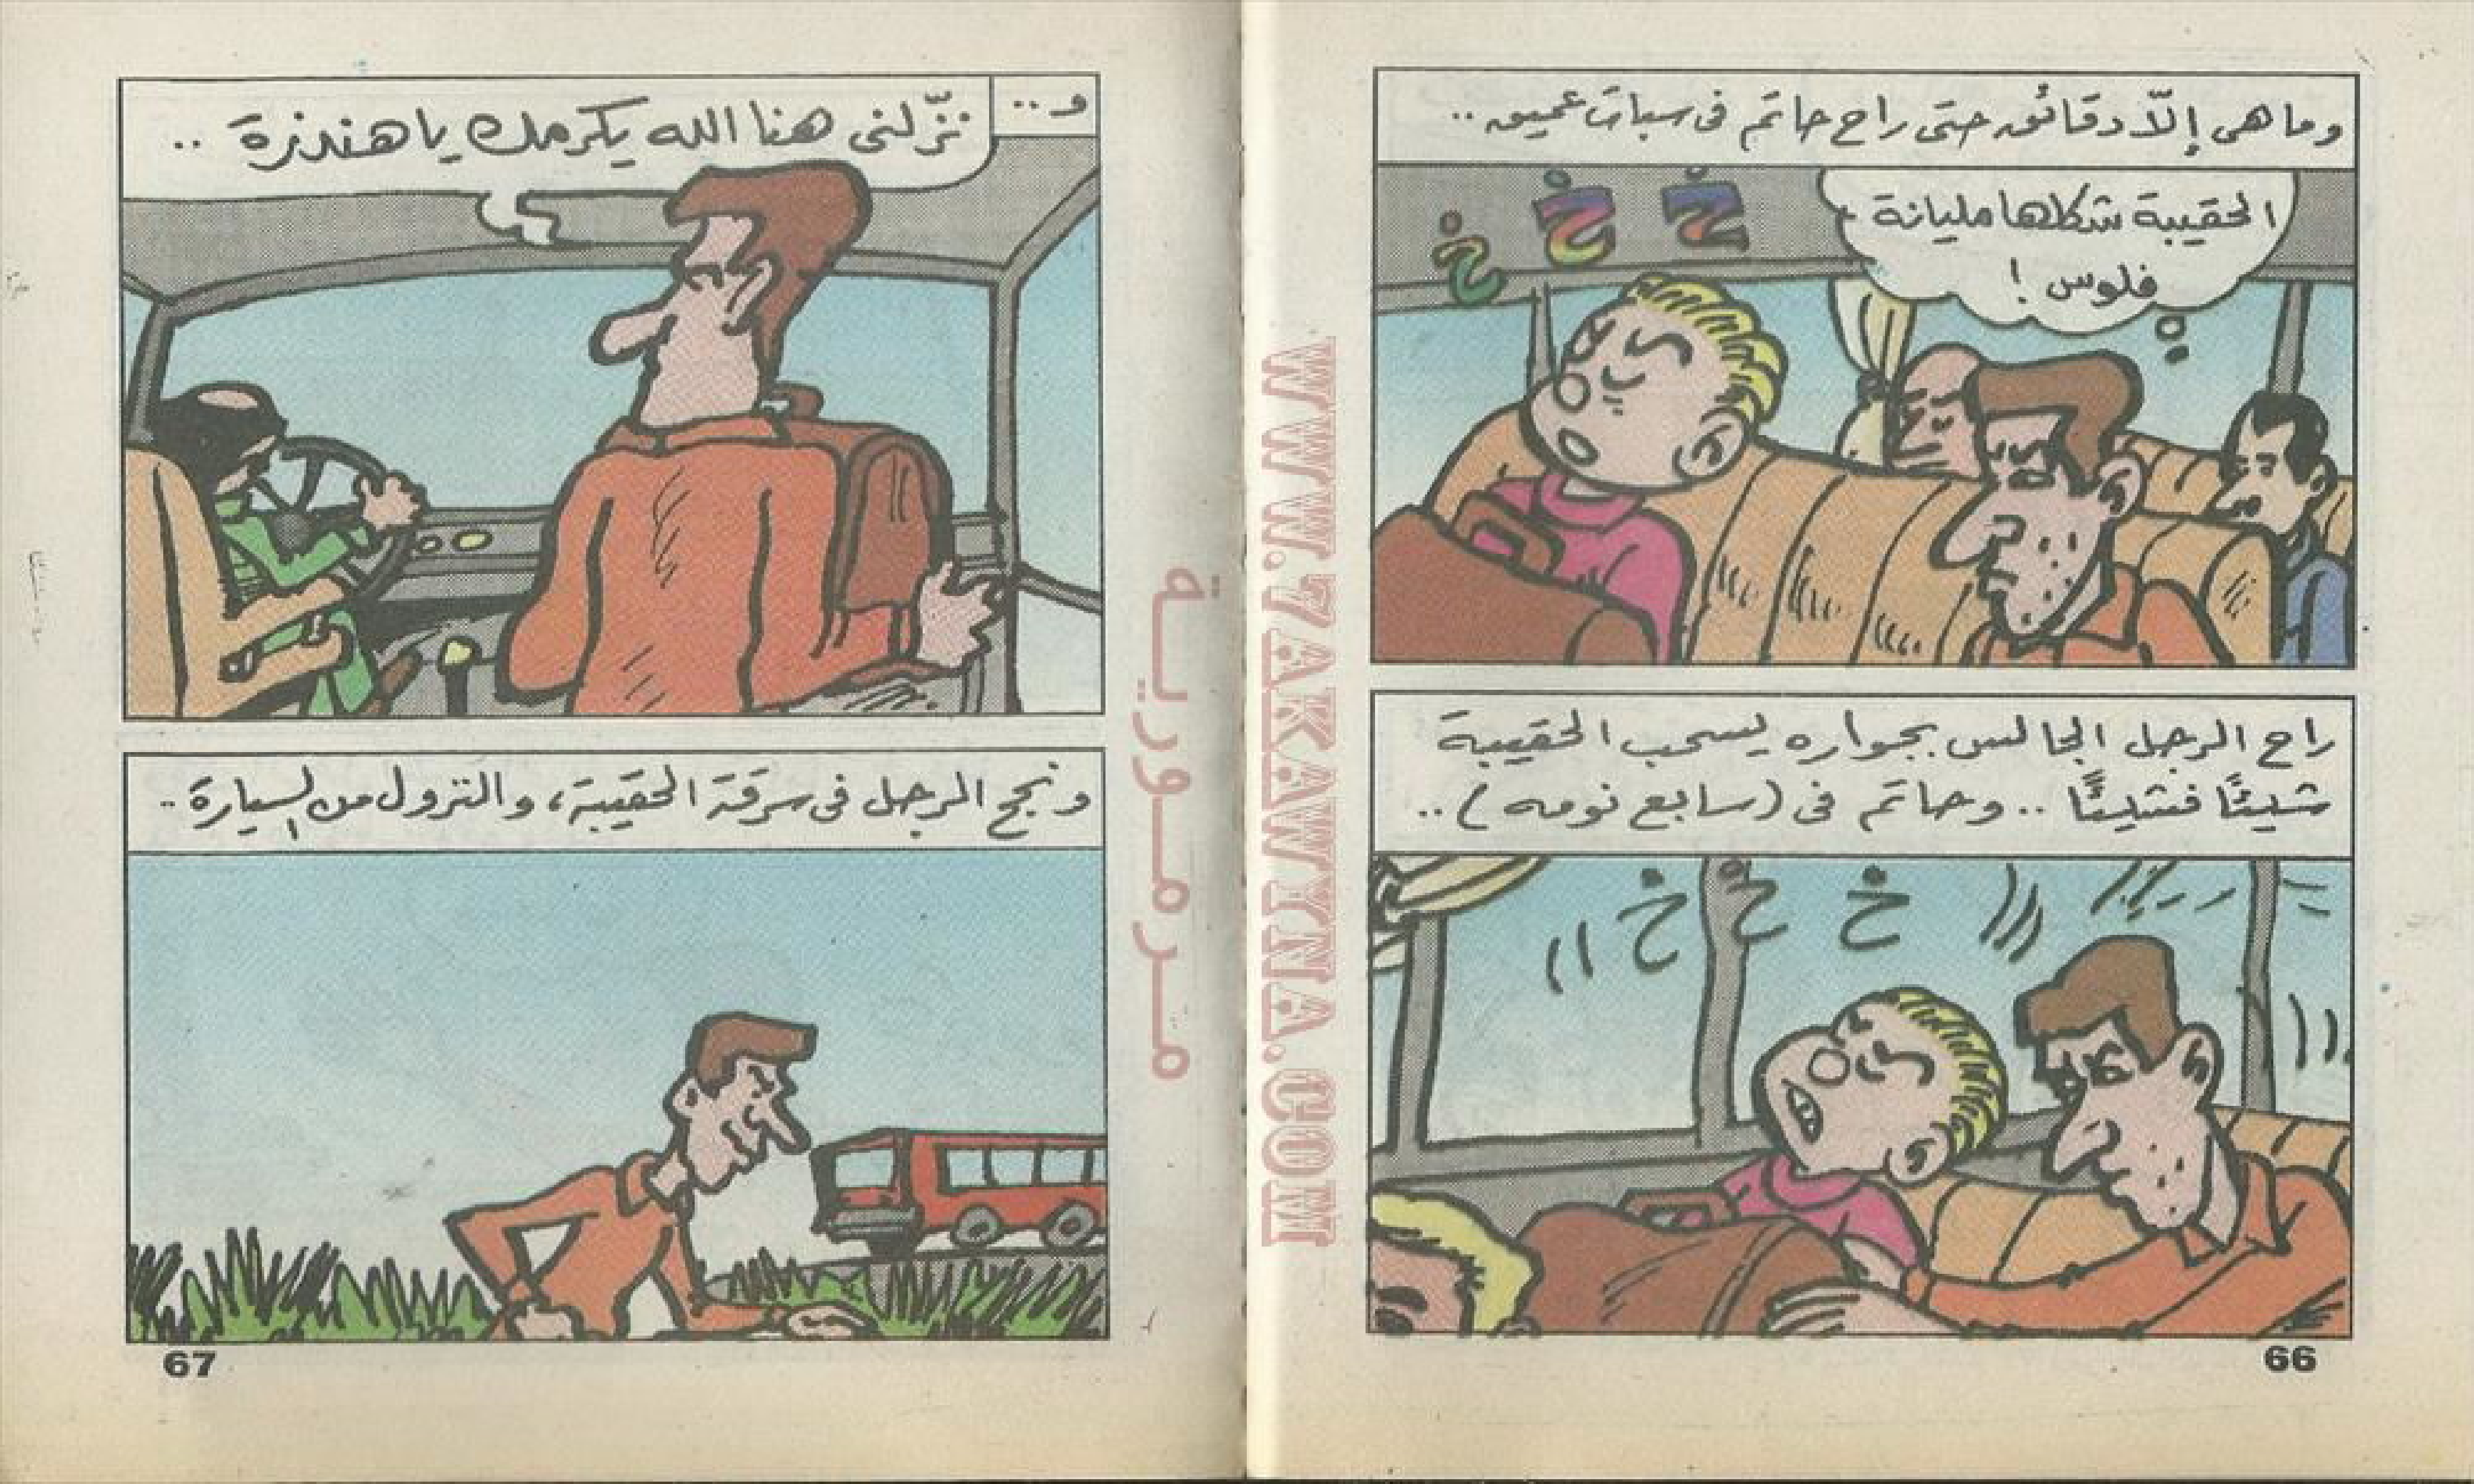 وما هى إلّا دقائق حتى راح حاتم فى سبات عميق ..
الحقيبة شكلها مليانة
فلوس !
خ خ خ
راح الرجل الجالس بجواره يسحب الحقيبة
شيئًا فشيئًا .. وحاتم فى (سابع نومه) ..
خ خ خ
66
و ..
نزّلنى هنا الله يكرمك يا هندزة ..
ونجح الرجل فى سرقة الحقيبة، والنزول من السيارة ..
67
WWW.7AKAWYNA.COM
مرمورية